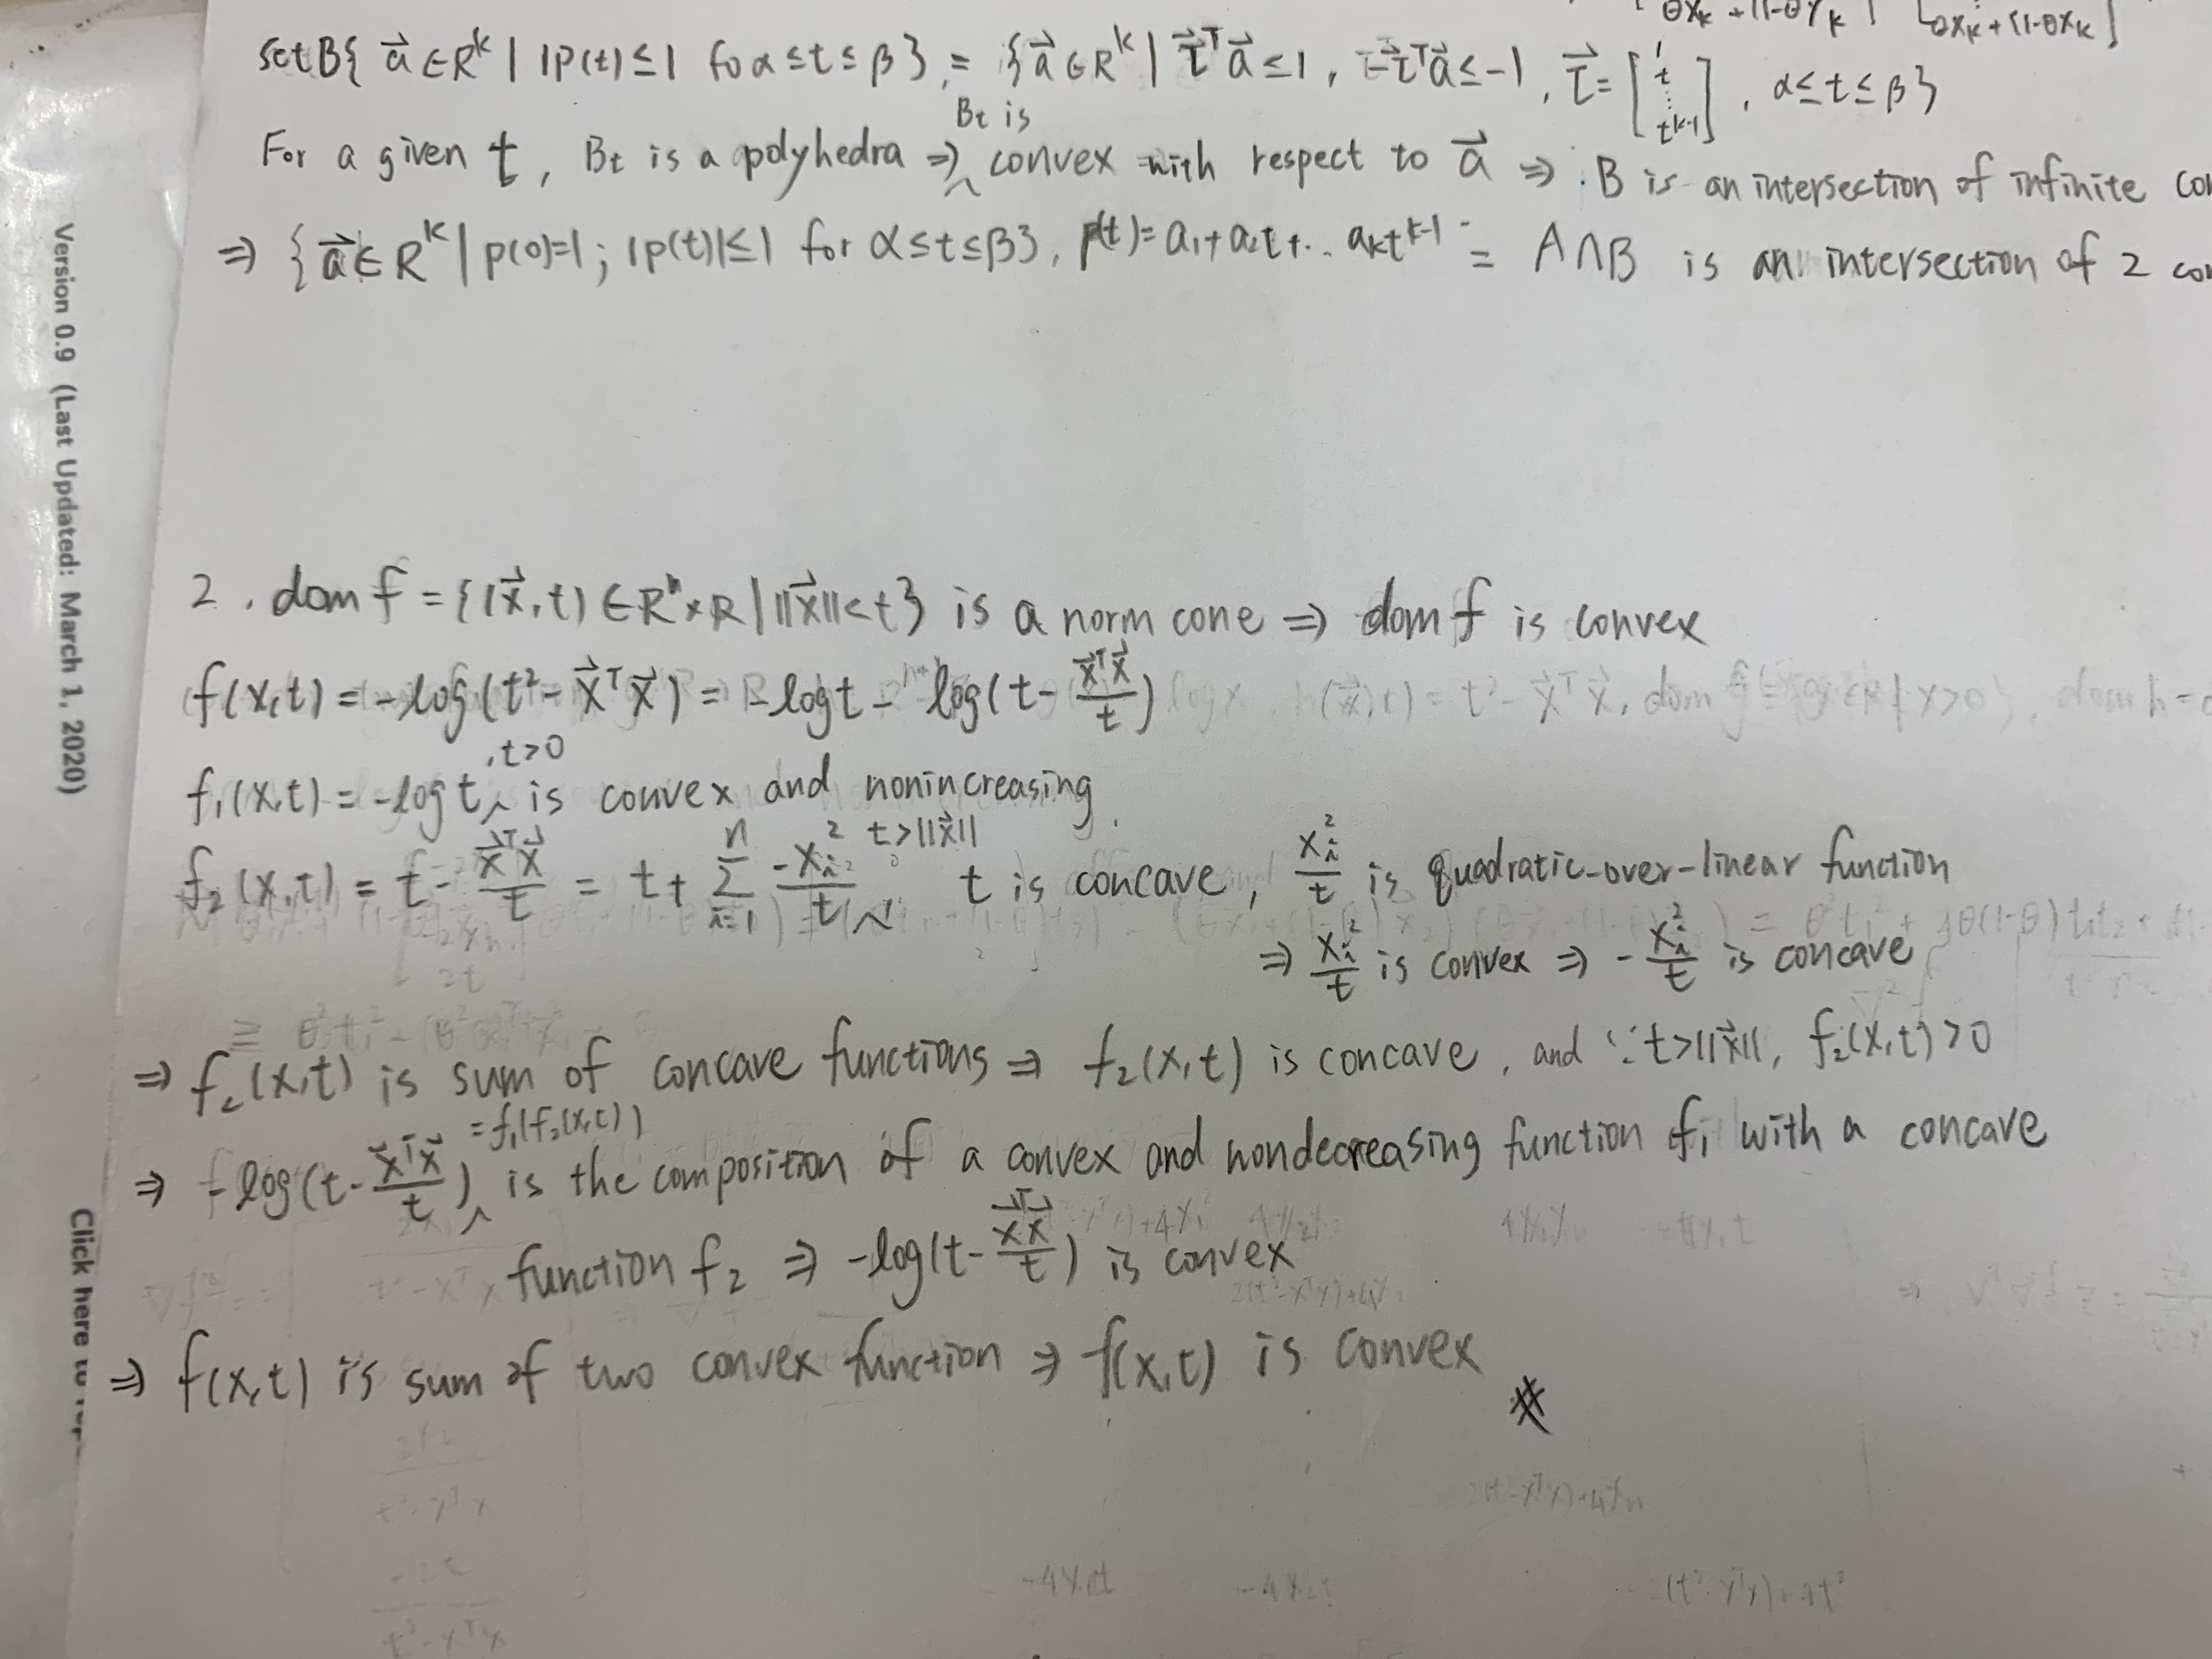 Version 0.9 (Last Updated: March 1, 2020)
Click here to
set B{ a⃗ ∈ R^k | |p(t)| ≤ 1 for α ≤ t ≤ β } = { a⃗ ∈ R^k | t⃗^T a⃗ ≤ 1, -t⃗^T a⃗ ≤ -1, t⃗ = [1 t ⋮ t^{k-1}], α ≤ t ≤ β }
For a given t, Bt is a polyhedra ⇒ Bt is convex with respect to a⃗ ⇒ B is an intersection of infinite
⇒ { a⃗ ∈ R^k | p(0)=1; |p(t)| ≤ 1 for α ≤ t ≤ β }, p(t) = a1 + a2t + .. akt^{k-1} = A∩B is an intersection of 2
2. dom f = {(x⃗,t) ∈ R^n × R | ||x⃗|| < t} is a norm cone ⇒ dom f is convex
f(x,t) = -log(t² - x⃗^T x⃗) = -log t - log(t - x⃗^T x⃗ / t)
f1(x,t) = -log t, t>0 is convex and nonincreasing.
f2(x,t) = t - x⃗^T x⃗ / t = t + Σ_{i=1}^{n} -xi² / t, t > ||x⃗|| t is concave, xi² / t is quadratic-over-linear function
⇒ xi² / t is convex ⇒ -xi² / t is concave
⇒ f2(x,t) is sum of concave functions ⇒ f2(x,t) is concave, and ∵ t > ||x⃗||, f2(x,t) > 0
⇒ -log(t - x⃗^T x⃗ / t) = f1(f2(x,t)) is the composition of a convex and nondecreasing function f1 with a concave
function f2 ⇒ -log(t - x⃗^T x⃗ / t) is convex
⇒ f(x,t) is sum of two convex function ⇒ f(x,t) is convex